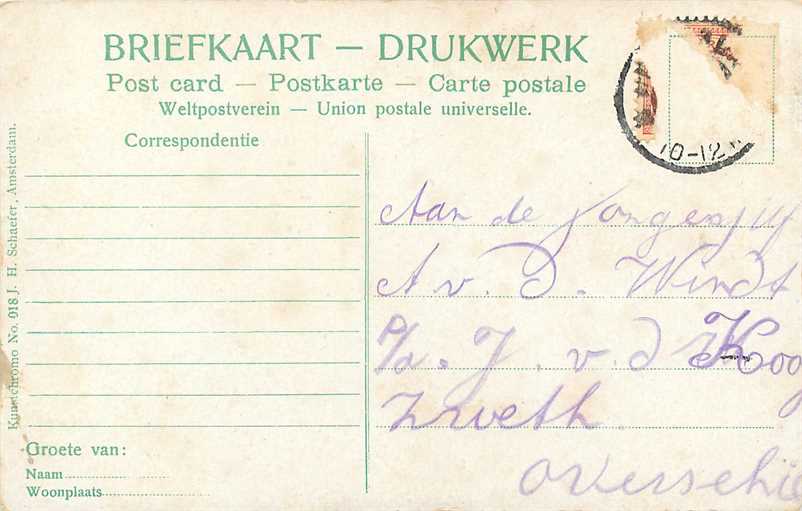 BRIEFKAART — DRUKWERK
Post card — Postkarte — Carte postale
Weltpostverein — Union postale universelle.
Correspondentie
10-12
Aan de
A v. D. Windt
P/a. J. v. d Koog
Zweth
Overschie
Groete van:
Naam
Woonplaats
Kunstchromo No. 918 J. H. Schaefer, Amsterdam.